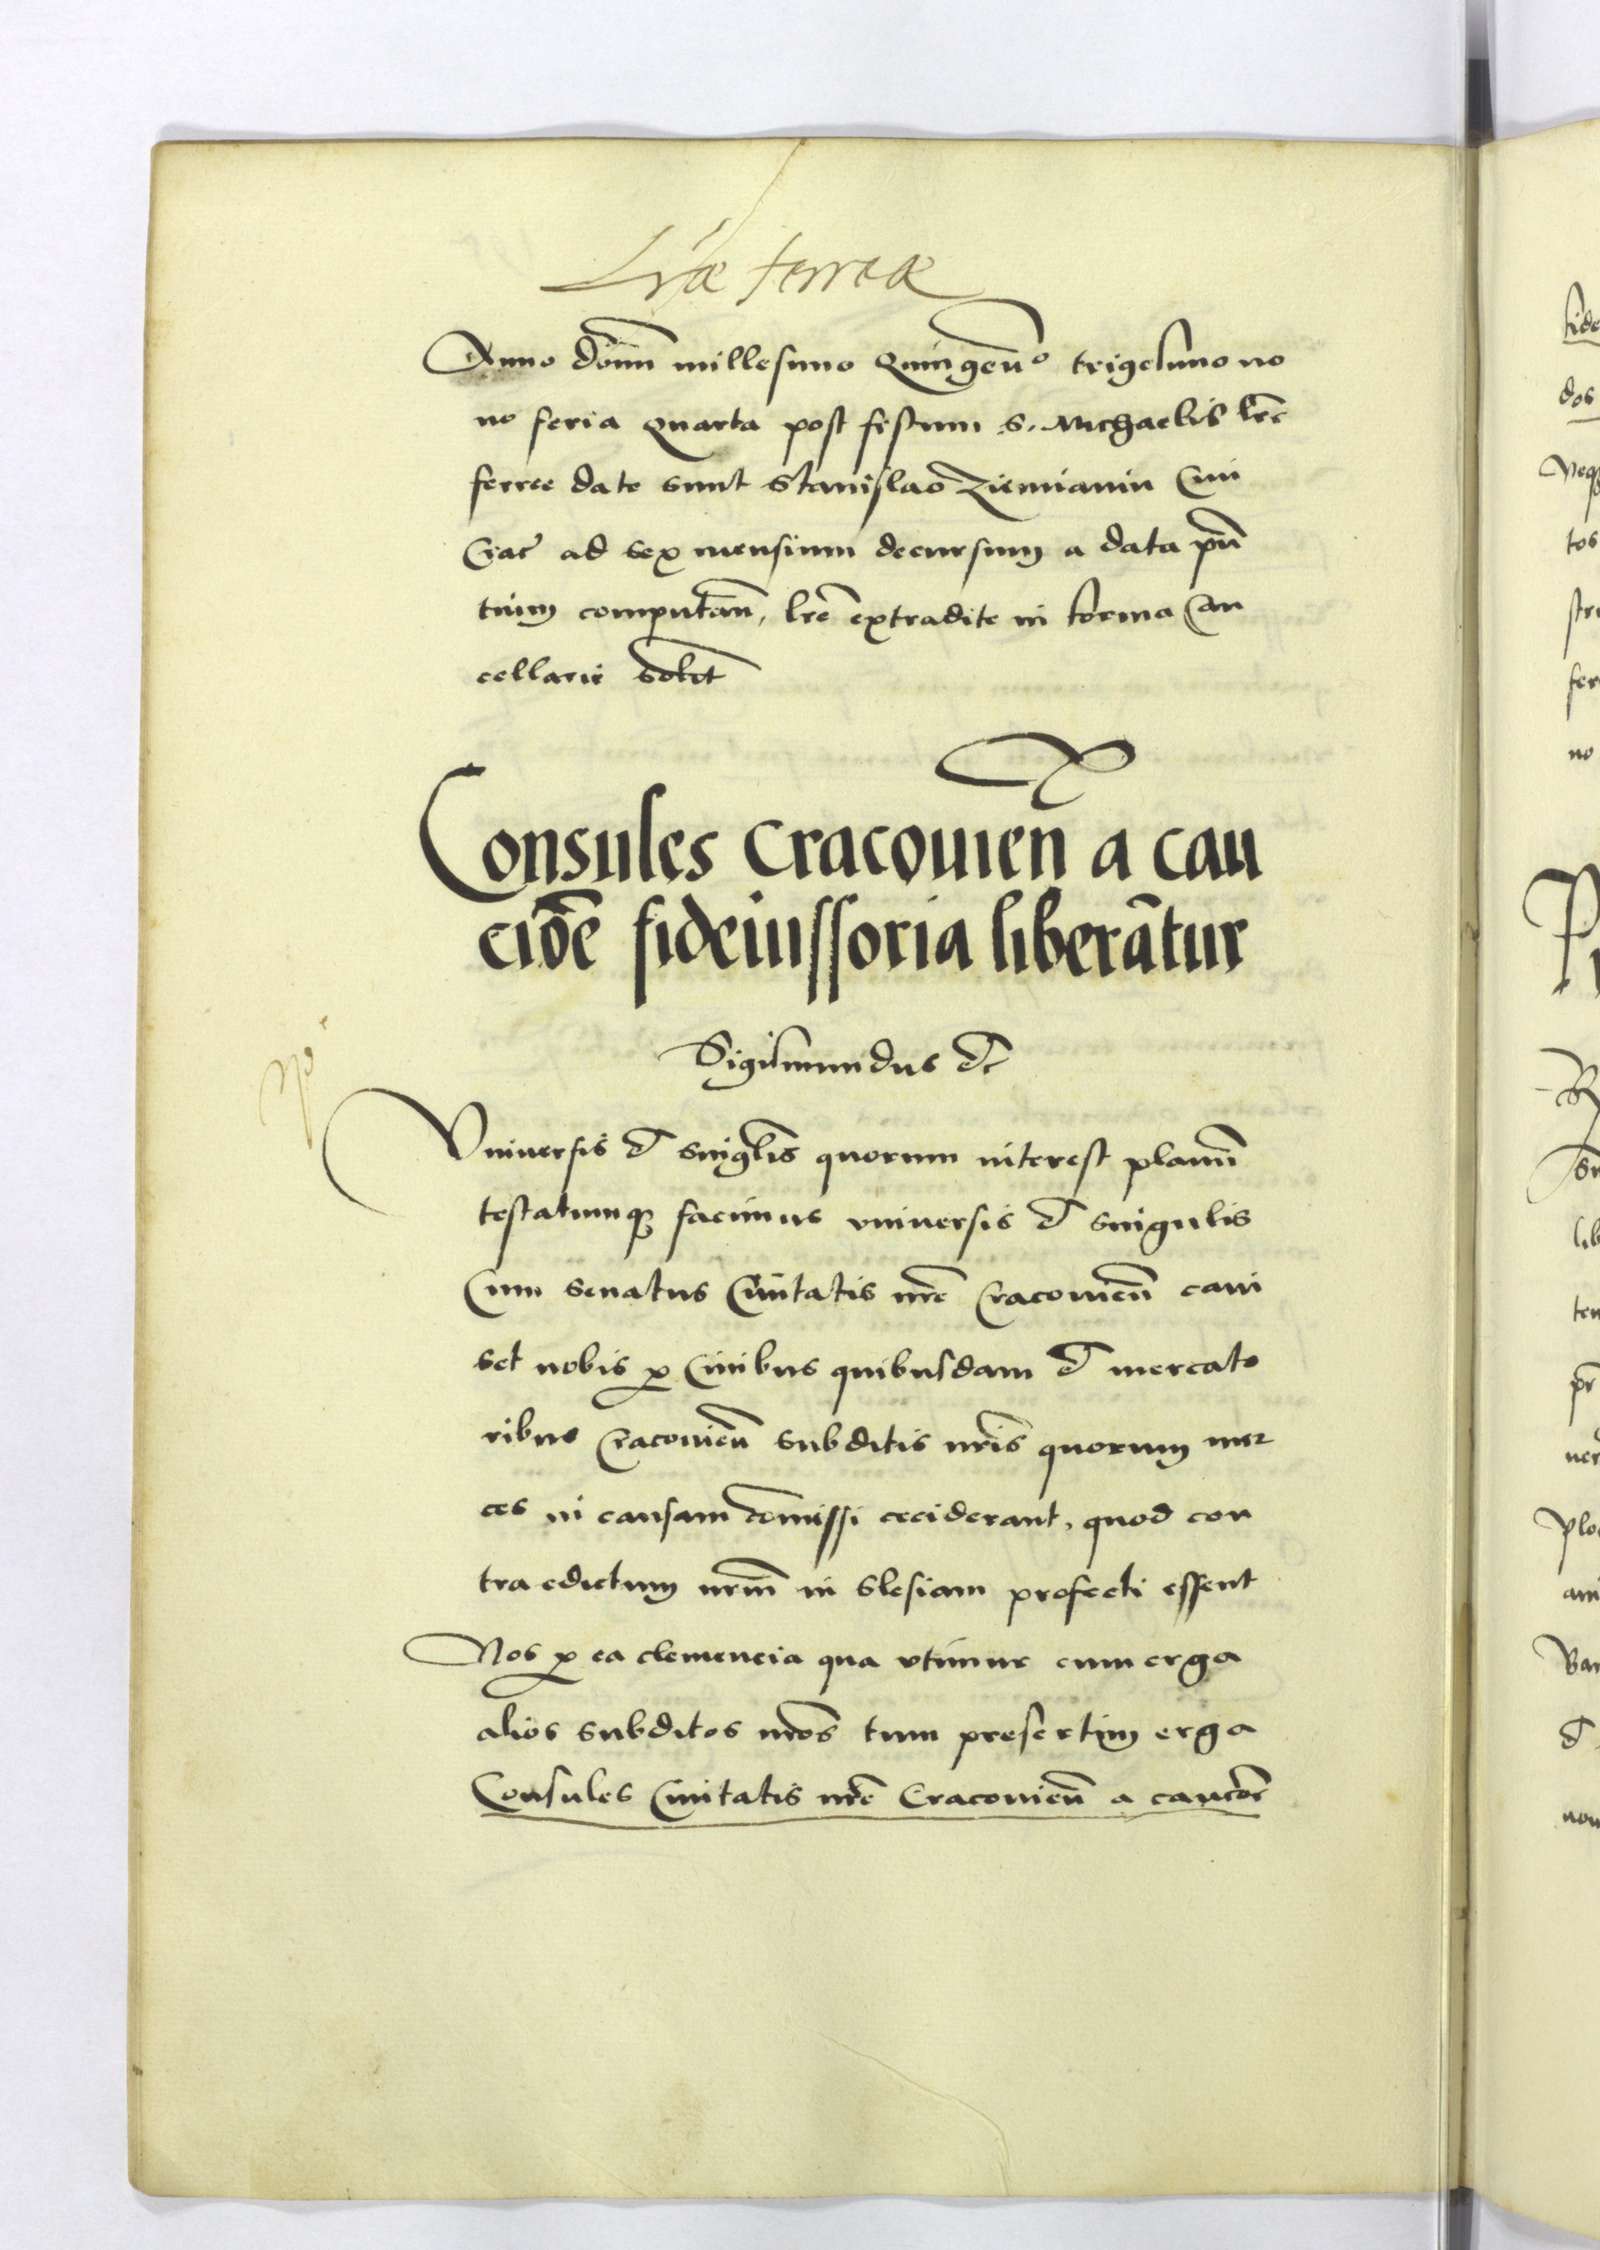 Lr̃æ ferreæ
Anno dom̃ millesimo quingen̄º trigesimo no
no feria quarta post festum s. Michaelis lr̃e
ferree date sunt Stanislao Ziemianin Ciui
Crac̃ ad sex mensium decursum a data pñ
tium computan̄, lr̃e extradite in forma Can
cellarie solit̃
Consules Cracouien̄ a cau
cio͞e fideiussoria liberãtur
Sigismundus &c
Vniuersis & singl̃is quorum interest planũ
testatumq3 facimus vniuersis & singulis
Cum senatus Ciuitatis nr̃e Cracouien̄ caui
set nobis p Ciuibus quibusdam & mercato
ribus Cracouien̄ subditis nr̃is quorum mer
ces in causam com̃issi ceciderant, quod con
tra edictum nr̃m in Slesiam profecti essent
Nos p ea clemencia qua vtimur cum erga
alios subditos nr̃os tum presertim erga
Consules Ciuitatis nr̃e Cracouien̄ a caucõe
fide
dos
Neq3
tos
fer
no
R
lib
ten
pr̃
ner
ani
&
non